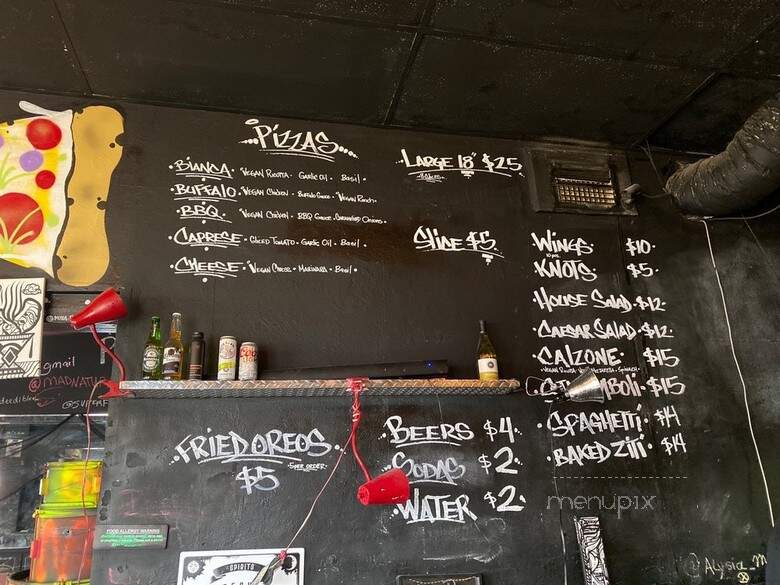 PIZZAS
BIANCA • VEGAN RICOTTA • GARLIC OIL • BASIL •
BUFFALO • VEGAN CHICKEN • BUFFALO SAUCE • VEGAN RANCH •
BBQ • VEGAN CHICKEN • BBQ SAUCE • CARAMELIZED ONIONS •
CAPRESE • SLICED TOMATO • GARLIC OIL • BASIL •
CHEESE • VEGAN CHEESE • MARINARA • BASIL •
LARGE 18" $25
SLICE $5
WINGS $10
10 PCS
KNOTS $5
HOUSE SALAD $12
CAESAR SALAD $12
CALZONE $15
VEGAN RICOTTA SPINACH
$15
SPAGHETTI $14
BAKED ZITI $14
FRIED OREOS
$5
BEERS $4
SODAS $2
WATER $2
gmail
@MADNATU
FOOD ALLERGY WARNING
SPIRITS
menupix
@Alysia_M